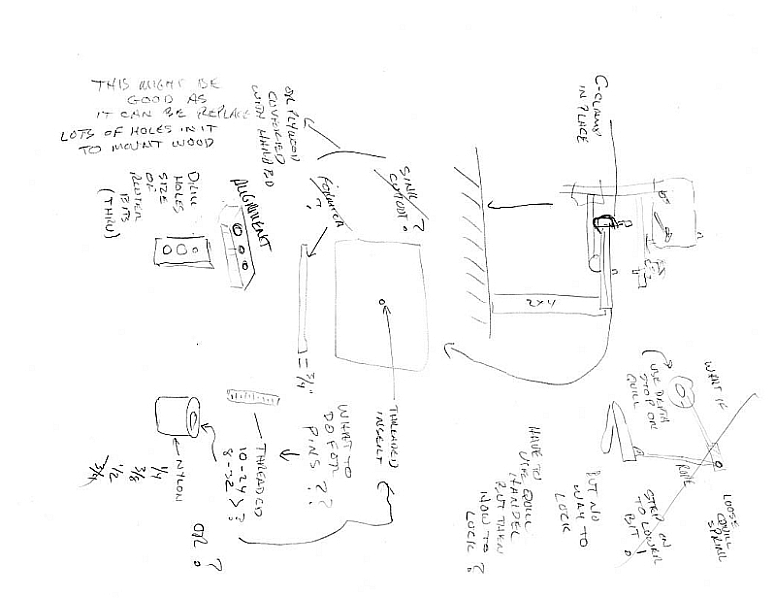 THIS MIGHT BE
GOOD AS
IT CAN BE REPLACE
LOTS OF HOLES IN IT
TO MOUNT WOOD
OR PLYWOOD
COVERED
WITH HARDBD
C-CLAMP
IN PLACE
SINK
CUTOUT?
FORMICA
?
DRILL
HOLES
SIZE
OF
ROUTER
BITS
(THRU)
ALIGNMENT
2x4
= 3/4"
THREADED
INSERT
WHAT TO
DO FOR
PINS ??
THREADED
10-24 > ?
8-32
OR ?
NYLON
1/4
3/8
1/2
3/4
WHAT IF
USE DEPTH
STOP ON
QUILL
ROPE
LOOSE
QUILL
SPRING
STEP ON
TO LOWER
BIT !
BUT NO
WAY TO
LOCK
HAVE TO
USE QUILL
HANDEL
BUT THEN
HOW TO
LOCK ?